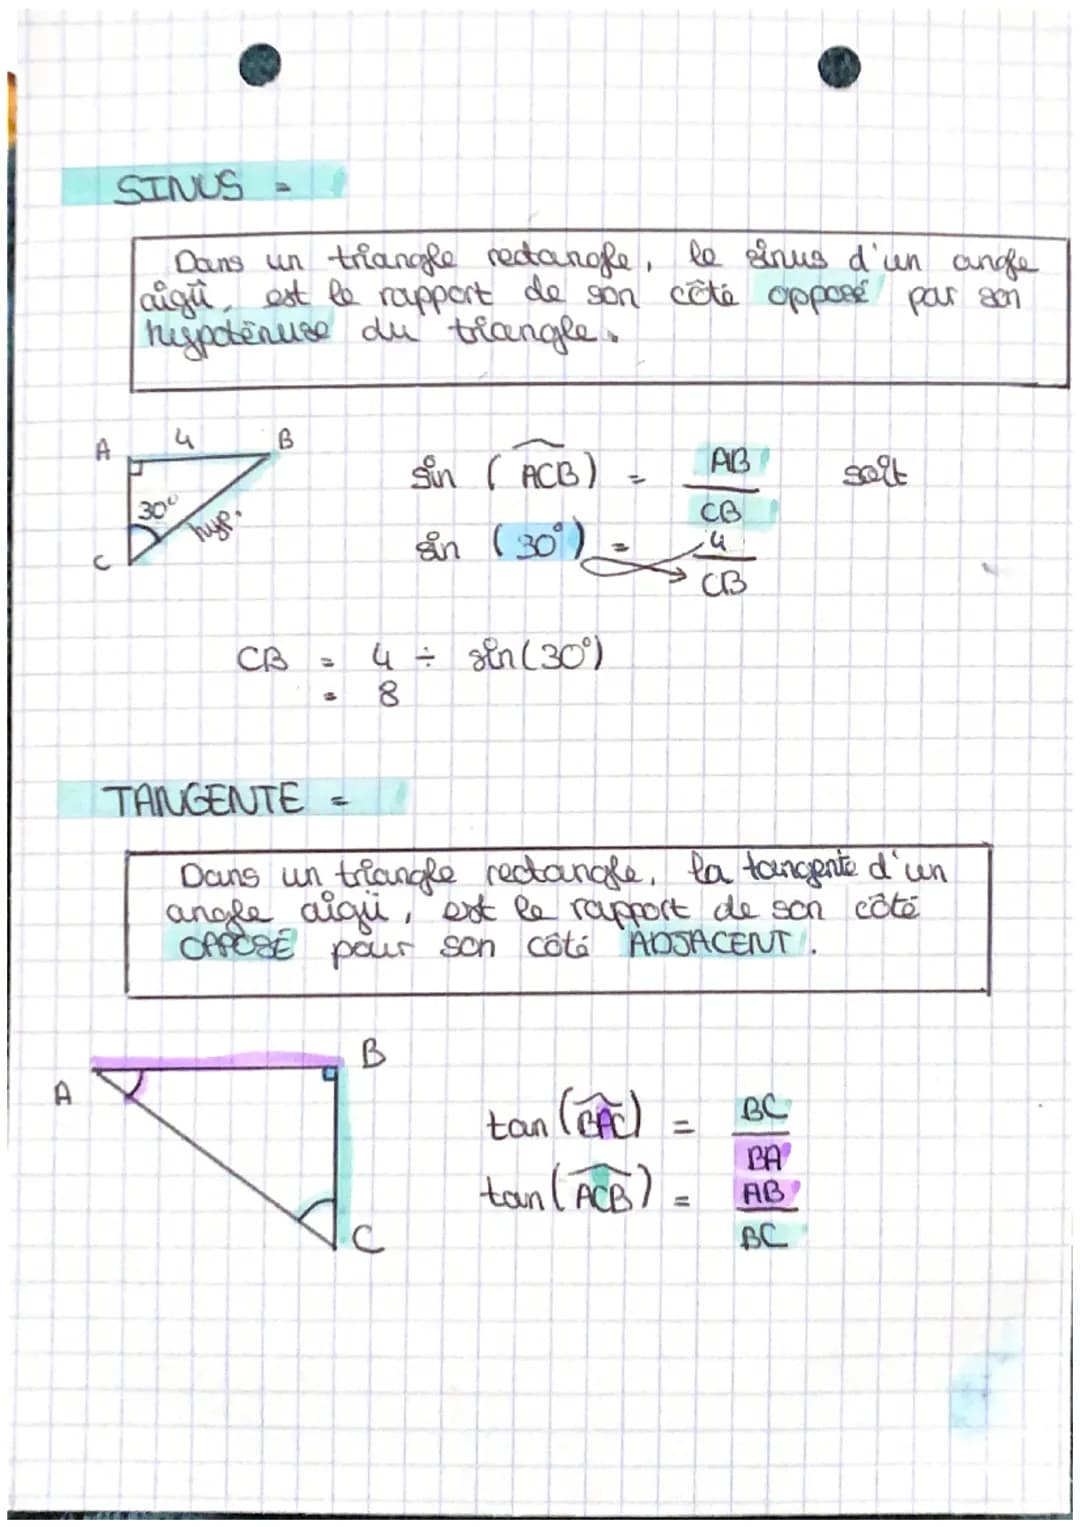 SINUS =
Dans un triangle rectangle, le sinus d'un angle
aigü, est le rapport de son côté opposé par son
hypoténuse du triangle.
A 4 B
30°
hyp.
C
sin (ACB) = AB soit
CB
sin (30°) = 4
CB
CB = 4 ÷ sin(30°)
= 8
TANGENTE =
Dans un triangle rectangle, la tangente d'un
angle aigü, est le rapport de son côté
OPPOSÉ pour son côté ADJACENT.
B
A
C
tan (BAC) = BC
BA
tan (ACB) = AB
BC